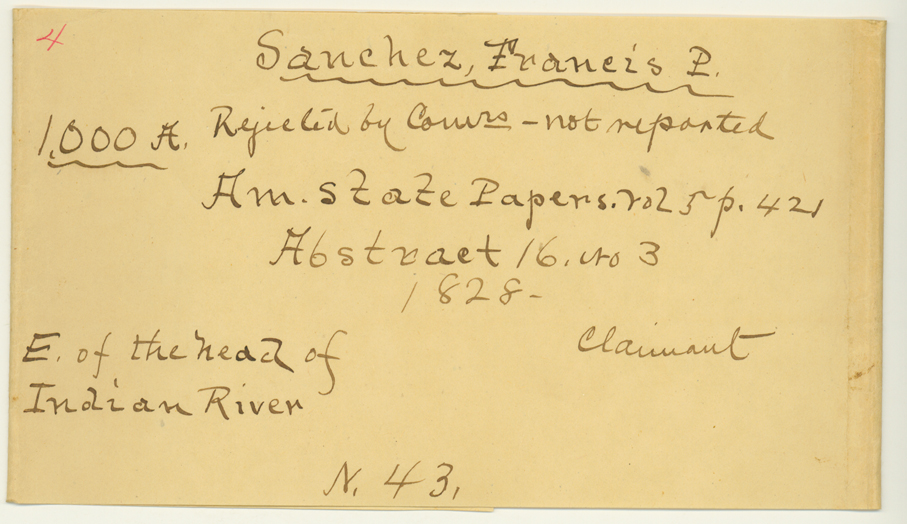 4
Sanchez, Francis P.
1,000 A. Rejected by Comrs - not reported
Am. State Papers. vol 5 p. 421
Abstract 16. No 3
1828 -
Claimant
E. of the head of
Indian River
N. 43.